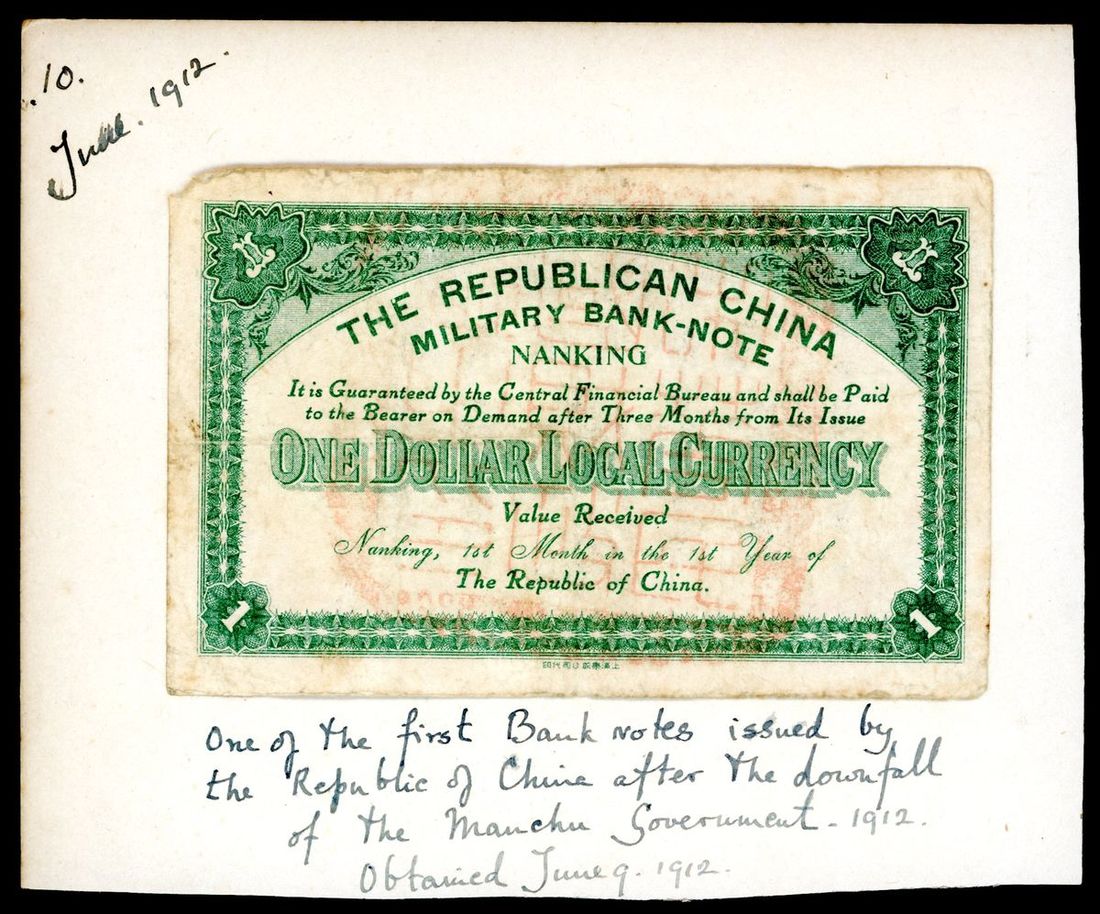 .10.
June. 1912.
1 1
THE REPUBLICAN CHINA
MILITARY BANK-NOTE
NANKING
It is Guaranteed by the Central Financial Bureau and shall be Paid
to the Bearer on Demand after Three Months from Its Issue
ONE DOLLAR LOCAL CURRENCY
Value Received
Nanking, 1st Month in the 1st Year of
The Republic of China.
1 1
One of the first Bank notes issued by
the Republic of China after the downfall
of the Manchu Government - 1912.
Obtained June 9. 1912.